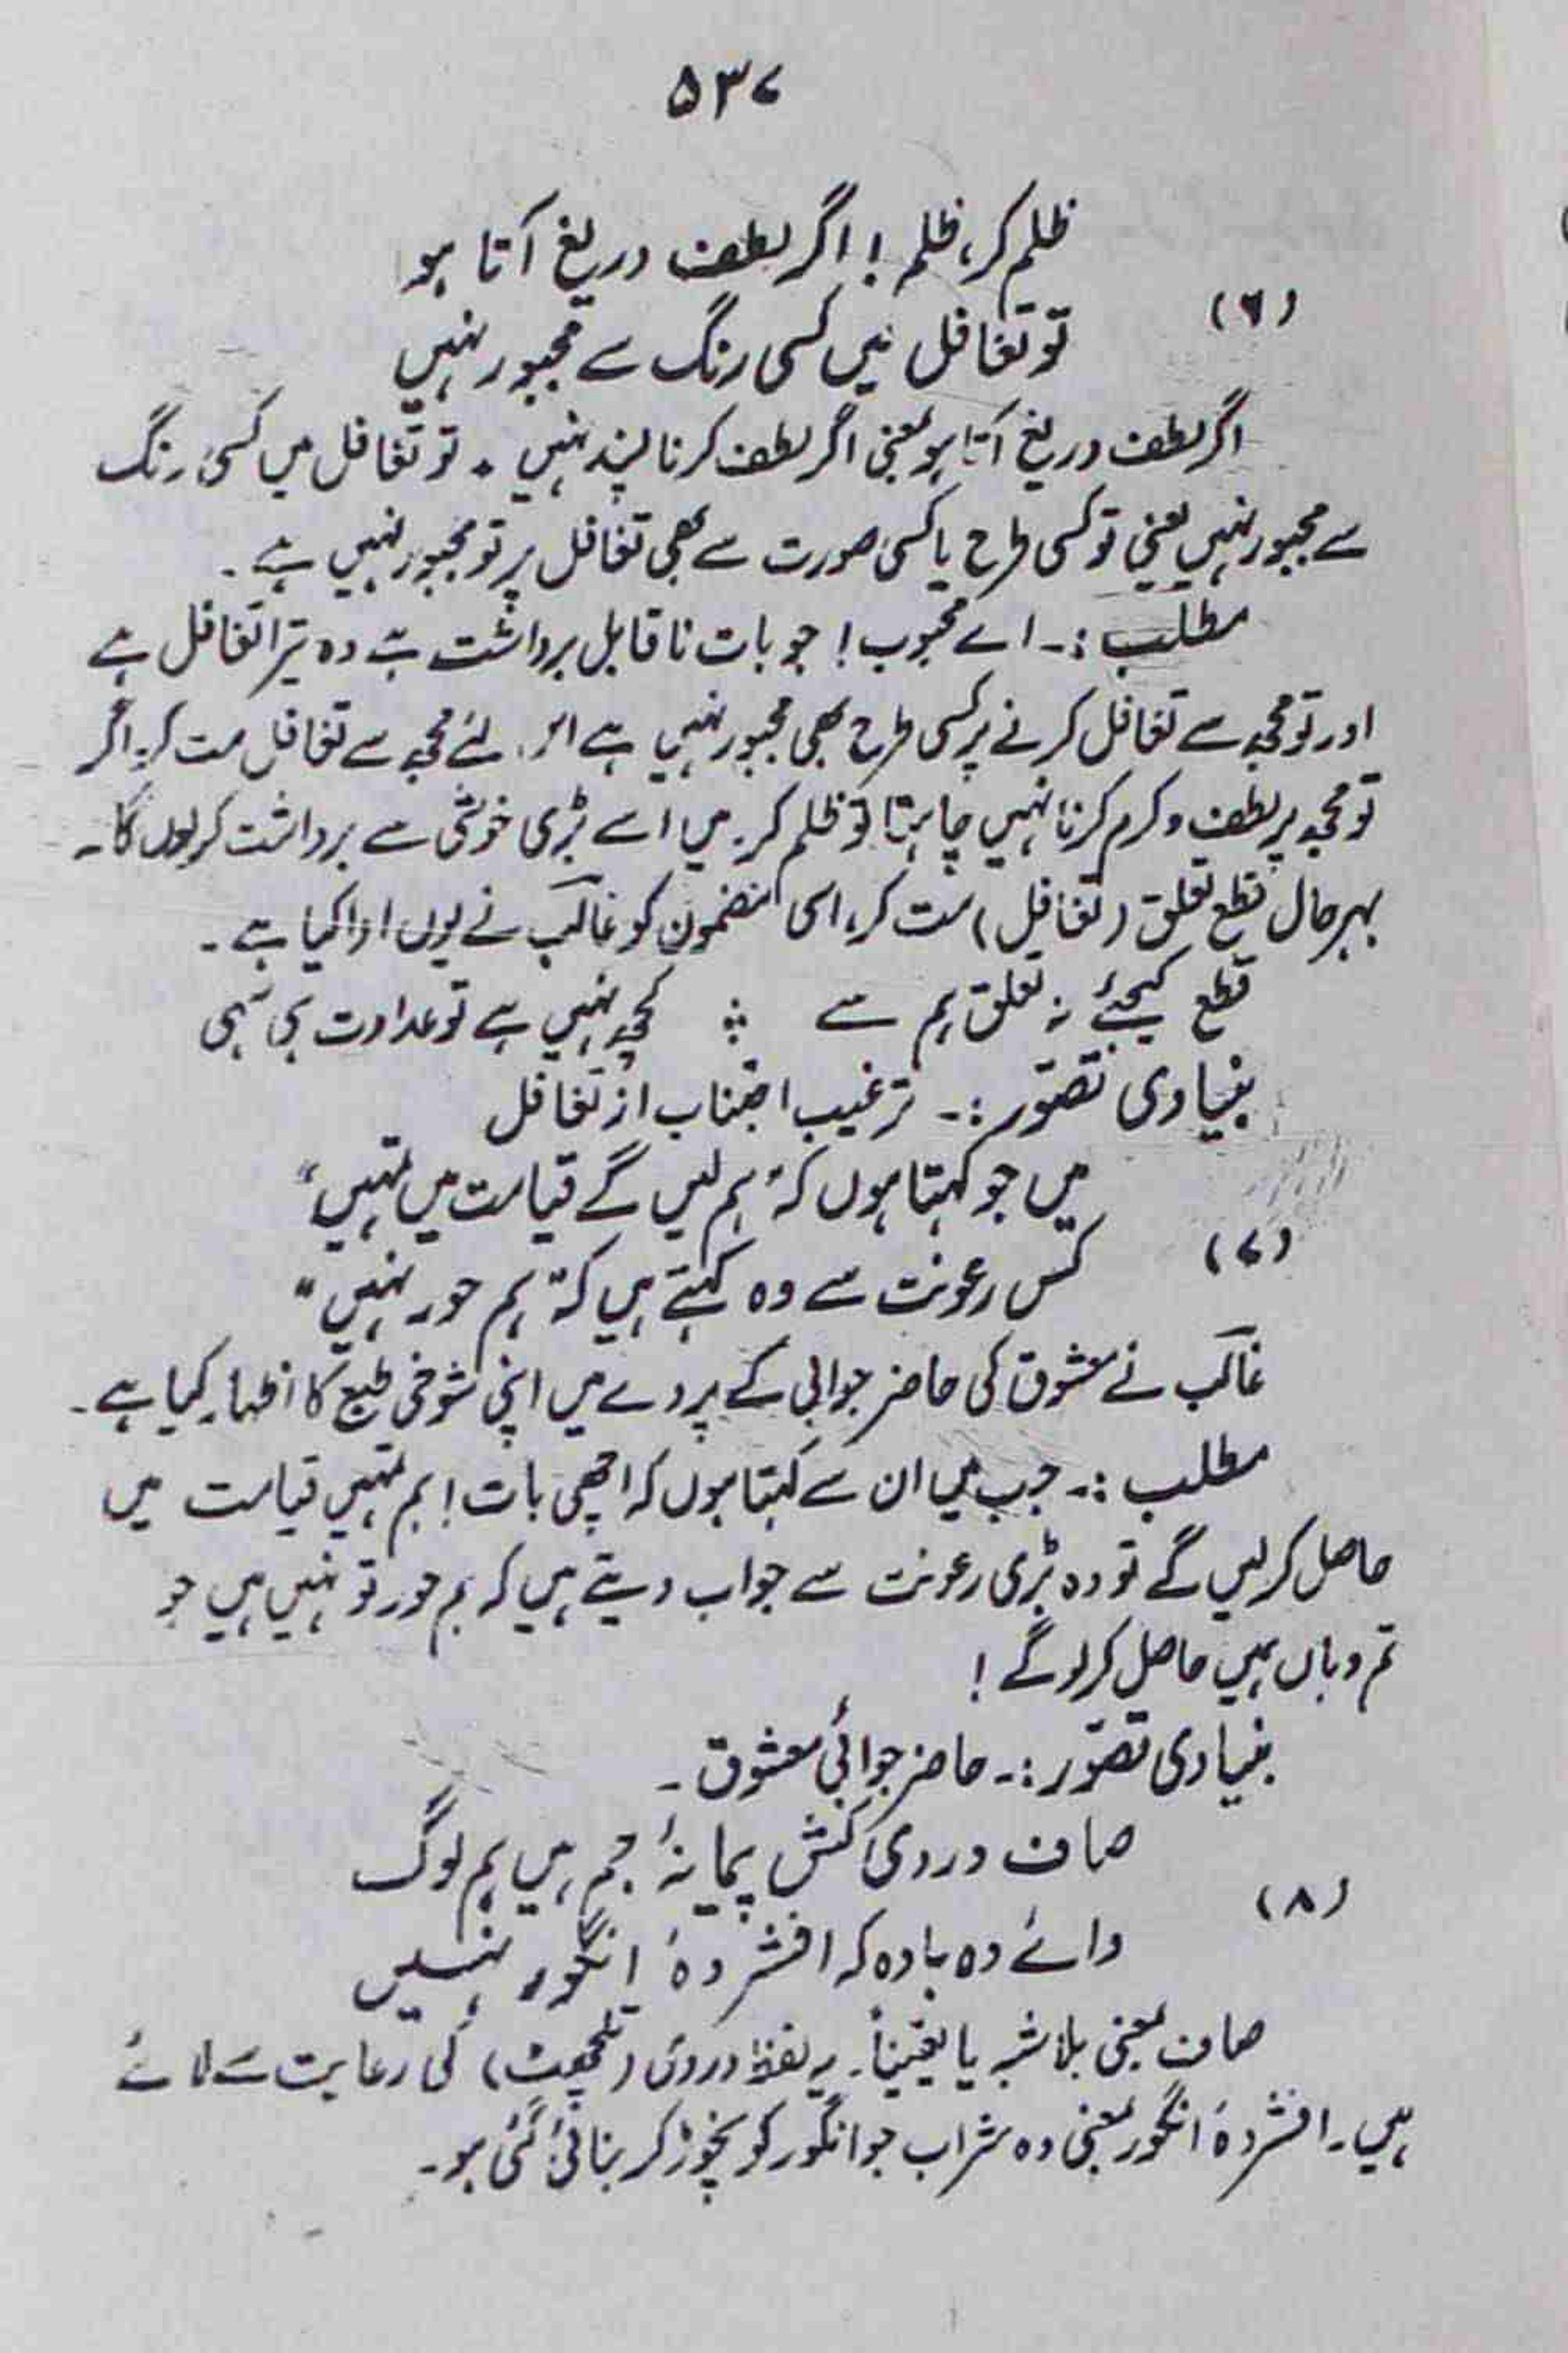 ۵۳۷
ظلم کر، ظلم! اگر لطف دریغ آتا ہو
(۶)
تو تغافل میں کسی رنگ سے مجبور نہیں
اگر لطف دریغ آتا ہو بمعنی اگر لطف کرنا پسند نہیں۔ تو تغافل میں کسی رنگ
سے مجبور نہیں یعنی تو کسی طرح یا کسی صورت سے بھی تغافل پر تو مجبور نہیں ہے۔
مطلب :۔ اے محبوب! جو بات ناقابل برداشت ہے وہ تیرا تغافل ہے
اور تو مجھ سے تغافل کرنے پر کسی طرح بھی مجبور نہیں ہے اس لئے مجھ سے تغافل مت کر۔ اگر
تو مجھ پر لطف و کرم کرنا نہیں چاہتا تو ظلم کر۔ میں اسے بڑی خوشی سے برداشت کر لوں گا۔
بہرحال قطع تعلق (تغافل) مت کر، اسی مضمون کو غالب نے یوں ادا کیا ہے۔
قطع کیجئے نہ تعلق ہم سے ؞ کچھ نہیں ہے تو عداوت ہی سہی
بنیادی تصوّر :۔ ترغیب اجتناب از تغافل
میں جو کہتا ہوں کہ "ہم لیں گے قیامت میں تمہیں"
(۷)
کس رعونت سے وہ کہتے ہیں کہ "ہم حور نہیں"
غالب نے معشوق کی حاضر جوابی کے پردے میں اپنی شوخی طبع کا اظہار کیا ہے۔
مطلب :۔ جب میں ان سے کہتا ہوں کہ اچھی بات! ہم تمہیں قیامت میں
حاصل کر لیں گے تو وہ بڑی رعونت سے جواب دیتے ہیں کہ ہم حور تو نہیں ہیں جو
تم وہاں ہمیں حاصل کر لو گے!
بنیادی تصوّر :۔ حاضر جوابی معشوق۔
صاف دردی کش پیمانۂ جم ہیں ہم لوگ
(۸)
وائے وہ بادہ کہ افشردۂ انگور نہیں
صاف بمعنی بلاشبہ یا یقیناً۔ یہ لفظ دردی (تلچھٹ) کی رعایت سے لائے
ہیں۔ افشردۂ انگور بمعنی وہ شراب جو انگور کو نچوڑ کر بنائی گئی ہو۔